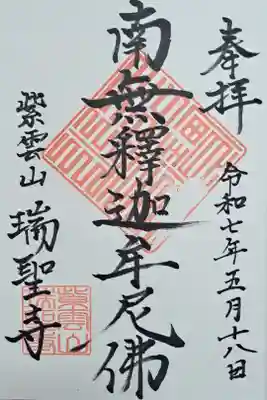 奉拝
令和七年五月十八日
南無釋迦牟尼佛
紫雲山
瑞聖寺